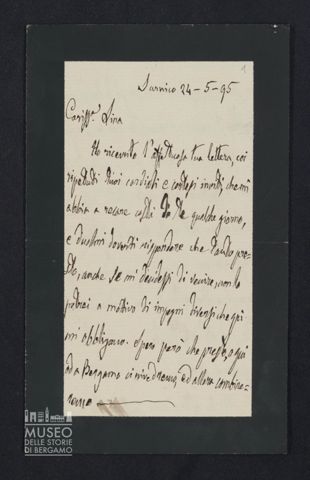 1
Sarnico 24-5-95
Cariss.ª Lina
Ho ricevuto l'affettuosa tua lettera, coi
ripetuti tuoi cordiali e cortesi inviti, che mi
abbia a recare costì da Te qualche giorno,
e duolmi doverti rispondere che tanto pre-
sto, anche se mi decidessi di venire, non lo
potrei a motivo di impegni diversi che qui
mi obbligano. Spero però che presto, o qui
od a Bergamo ci rivedremo, ed allora combine-
remo
MUSEO
DELLE STORIE
DI BERGAMO